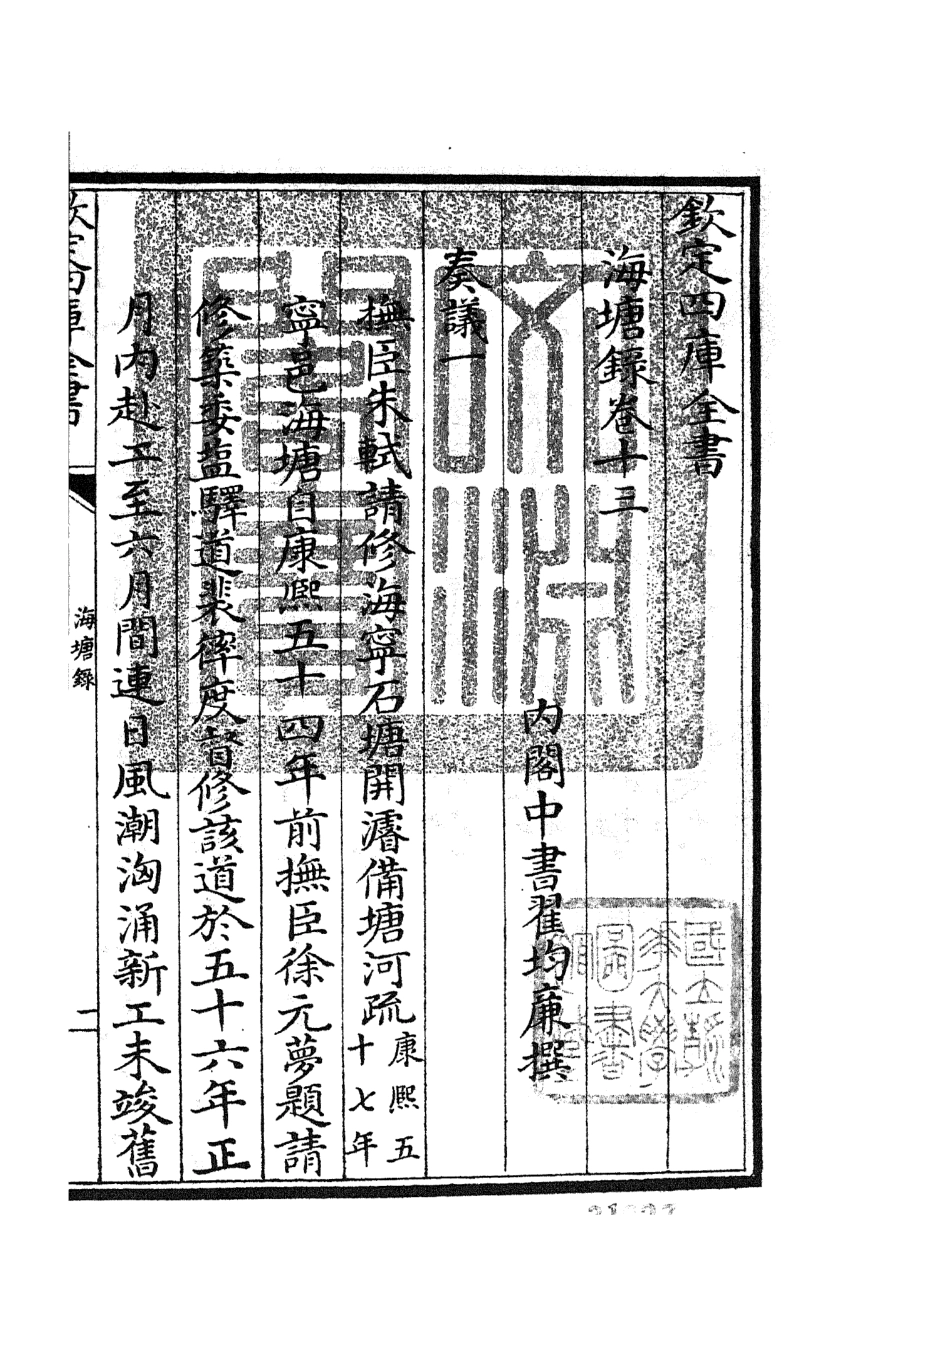 欽定四庫全書
海塘錄卷十三
内閣中書翟均廉撰
奏議一
撫臣朱軾請修海寧石塘開濬備塘河疏康熙五十七年
寧邑海塘自康熙五十四年前撫臣徐元夢題請
修築委塩驛道裴𢕑度督修該道於五十六年正
月内赴工至六月間連日風潮洶涌新工未竣舊
欽定四庫全書
海塘錄
文淵閣寶